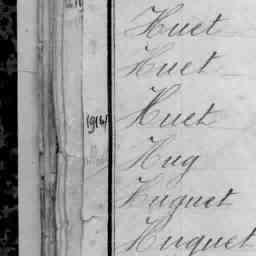 Huet
Huet
1914
Huet
Hug
Huguet
Huguet